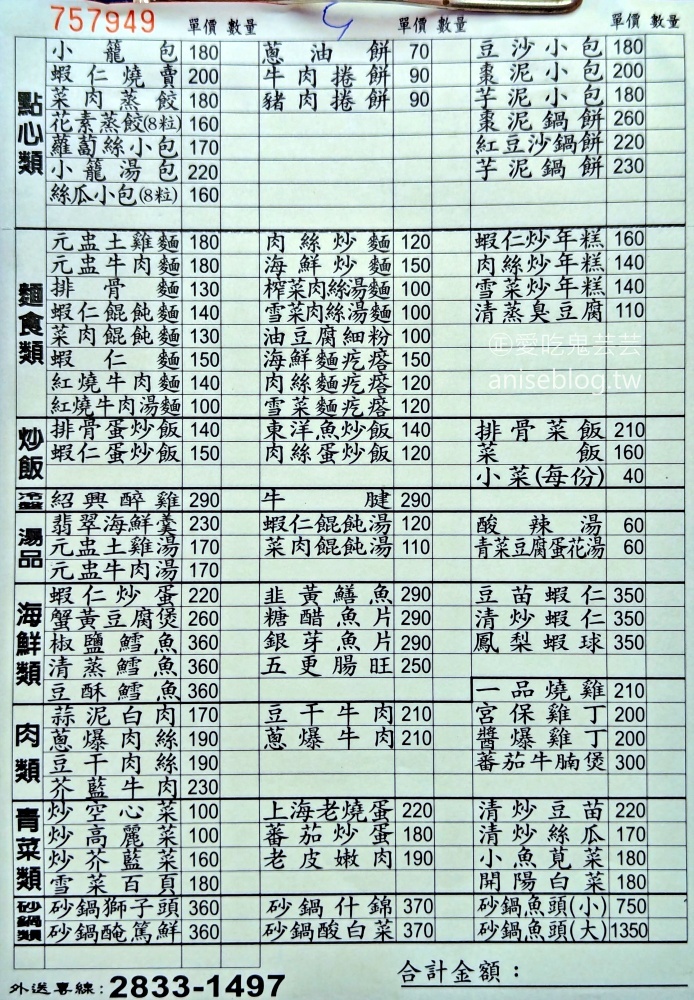 757949
單價 數量 單價 數量 單價 數量
點心類
小籠包 180 蔥油餅 70 豆沙小包 180
蝦仁燒賣 200 牛肉捲餅 90 棗泥小包 200
菜肉蒸餃 180 豬肉捲餅 90 芋泥小包 180
花素蒸餃(8粒) 160 棗泥鍋餅 260
蘿蔔絲小包 170 紅豆沙鍋餅 220
小籠湯包 220 芋泥鍋餅 230
絲瓜小包(8粒) 160
麵食類
元盅土雞麵 180 肉絲炒麵 120 蝦仁炒年糕 160
元盅牛肉麵 180 海鮮炒麵 150 肉絲炒年糕 140
排骨麵 130 榨菜肉絲湯麵 100 雪菜炒年糕 140
蝦仁餛飩麵 140 雪菜肉絲湯麵 100 清蒸臭豆腐 110
菜肉餛飩麵 130 油豆腐細粉 100
蝦仁麵 150 海鮮麵疙瘩 150
紅燒牛肉麵 140 肉絲麵疙瘩 120
紅燒牛肉湯麵 100 雪菜麵疙瘩 120
愛吃鬼芸芸
aniseblog.tw
炒飯
排骨蛋炒飯 140 東洋魚炒飯 140 排骨菜飯 210
蝦仁蛋炒飯 150 肉絲蛋炒飯 120 菜飯 160
小菜(每份) 40
冷盤
紹興醉雞 290 牛腱 290
湯品
翡翠海鮮羹 230 蝦仁餛飩湯 120 酸辣湯 60
元盅土雞湯 170 菜肉餛飩湯 110 青菜豆腐蛋花湯 60
元盅牛肉湯 170
海鮮類
蝦仁炒蛋 220 韭黃鱔魚 290 豆苗蝦仁 350
蟹黃豆腐煲 260 糖醋魚片 290 清炒蝦仁 350
椒鹽鱈魚 360 銀芽魚片 290 鳳梨蝦球 350
清蒸鱈魚 360 五更腸旺 250
豆酥鱈魚 360 一品燒雞 210
肉類
蒜泥白肉 170 豆干牛肉 210 宮保雞丁 200
蔥爆肉絲 190 蔥爆牛肉 210 醬爆雞丁 200
豆干肉絲 190 蕃茄牛腩煲 300
芥藍牛肉 230
青菜類
炒空心菜 100 上海老燒蛋 220 清炒豆苗 220
炒高麗菜 100 蕃茄炒蛋 180 清炒絲瓜 170
炒芥藍菜 160 老皮嫩肉 190 小魚莧菜 180
雪菜百頁 180 開陽白菜 180
砂鍋類
砂鍋獅子頭 360 砂鍋什錦 370 砂鍋魚頭(小) 750
砂鍋醃篤鮮 360 砂鍋酸白菜 370 砂鍋魚頭(大) 1350
外送專線:2833-1497 合計金額: